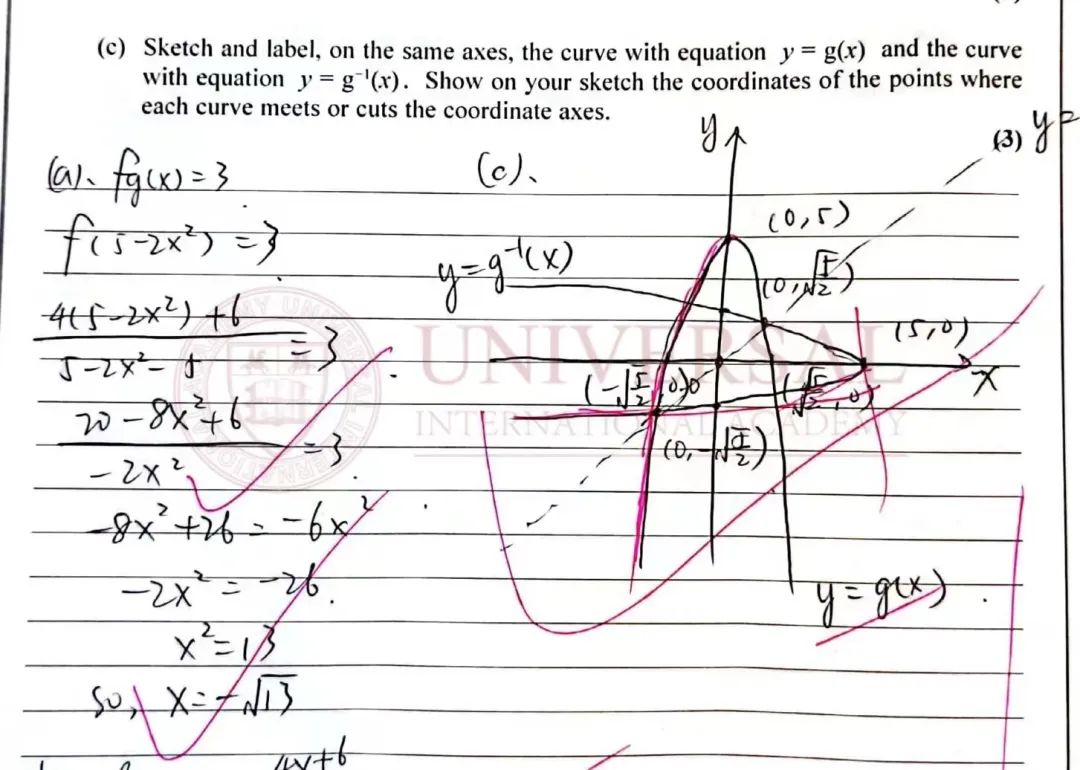 (c) Sketch and label, on the same axes, the curve with equation y = g(x) and the curve
with equation y = g⁻¹(x). Show on your sketch the coordinates of the points where
each curve meets or cuts the coordinate axes.
(3)
y=
(a)、fg(x)=3
f(5-2x²)=3
4(5-2x²)+6 / 5-2x²-5 =3
20-8x²+6 / -2x² =3
-8x²+26=-6x²
-2x²=-26.
x²=13
so, x=-√13
(c)、
y
(0,5)
y=g⁻¹(x)
(0,√5/2)
(5,0)
x
(-√5/2,0)
0
(√5/2,0)
(0,-√5/2)
y=g(x)
UNIVERSAL
INTERNATIONAL ACADEMY